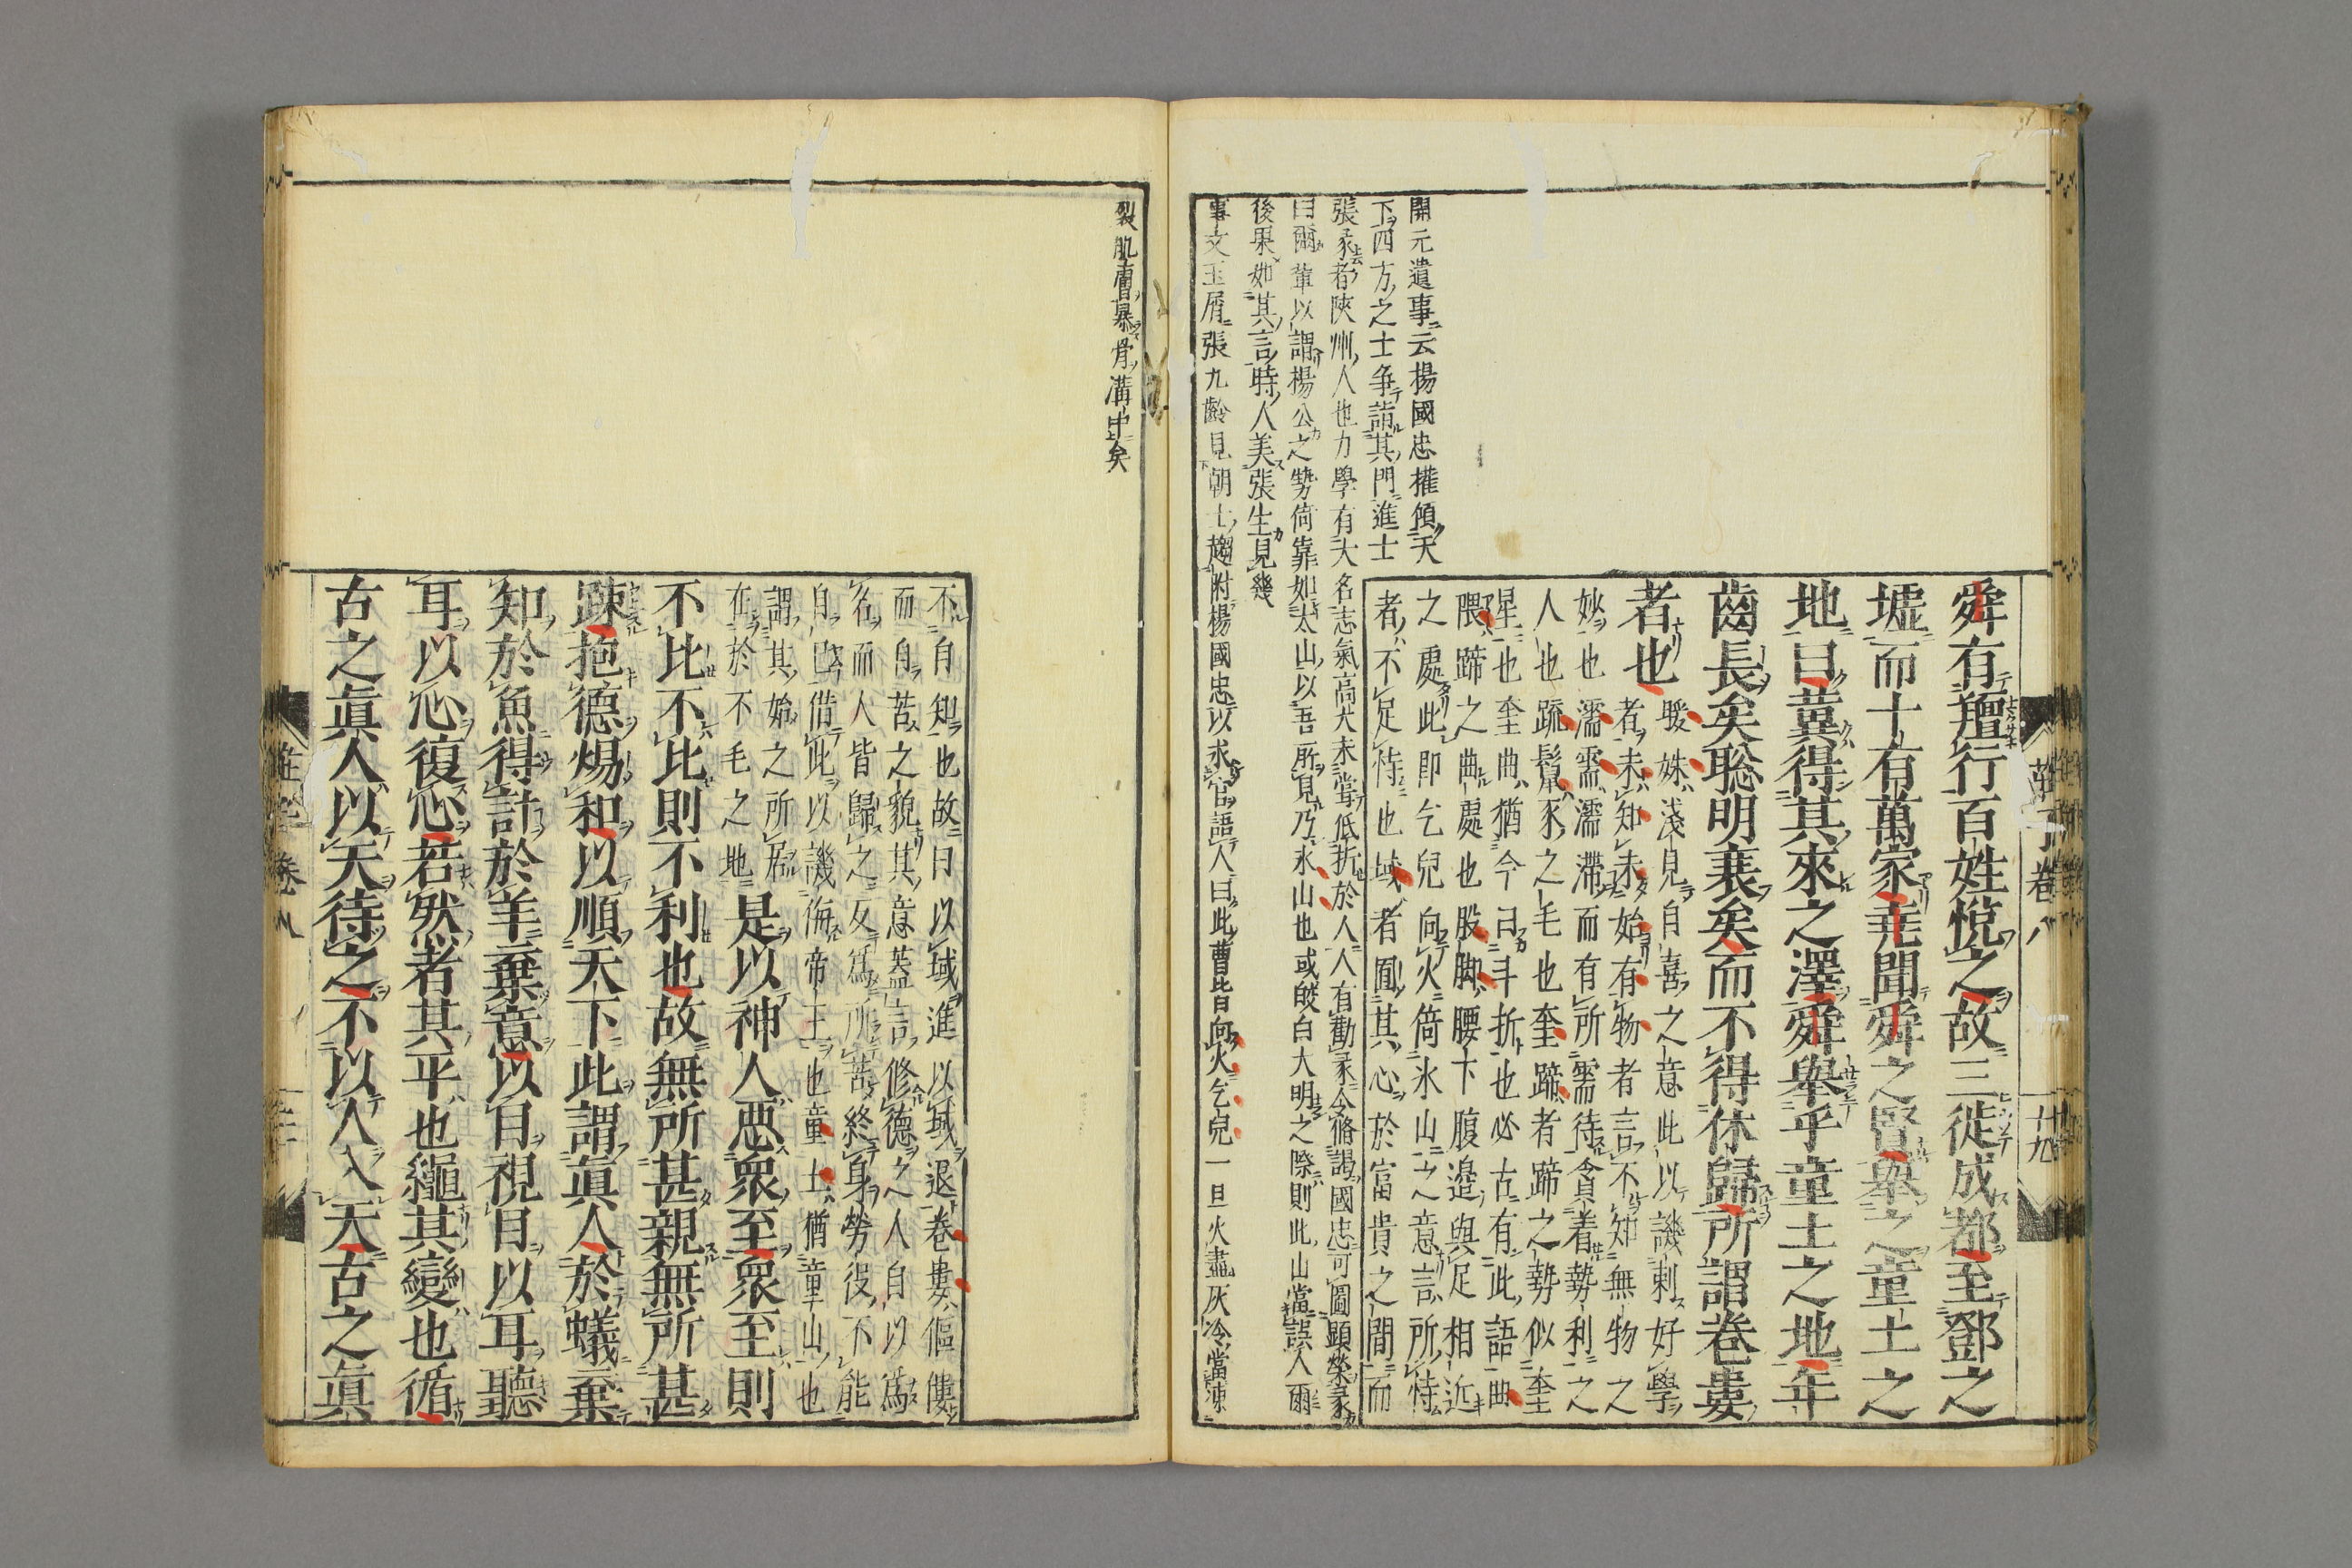 舜有羶行百姓悅之故三徙成都至鄧之
墟而十有萬家堯聞舜之賢舉之童土之
地曰兾得其來之澤舜舉乎童土之地年
齒長矣聡明衰矣而不得休歸所謂卷婁
者也
暖姝淺見自喜之意此以譏刺好學
者未知未始有物者言不知無物之
妙也濡需濡滯而有所需待貪着勢利之
人也䟽鬣豕之毛也奎蹄者蹄之勢似奎
星也奎曲猶今斗折也必古有此語曲
隈蹄之曲處也股脚腰卞腹邉與足相近
之處此即乞兒向火倚氷山之意言所恃
者不足恃也域者囿其心於富貴之間而
開元遺事云楊國忠權傾天
下四方之士争詣其門進士
張彖者陝州人也力學有大名志氣高大未嘗低折於人人有勸彖令脩謁國忠可圖顕榮彖
曰爾輩以謂楊公之勢倚靠如太山以吾所見乃氷山也或皎白大明之際則此山當誤人爾
後果如其言時人美張生見幾
事文玉屑張九齡見朝士趨附楊國忠以求官語人曰此曹皆向火乞兒一旦火盡灰冷當凍
莊子卷八
十九
裂肌膚暴骨溝中矣
不自知也故曰以域進以域退卷婁傴僂
而自苦之貌其意蓋言修德之人自以為
名而人皆歸之反為所苦終身勞役不能
自已借此以譏侮帝王也童土猶童山也
謂其始之所居
在於不毛之地
是以神人惡衆至衆至則
不比不比則不利也故無所甚親無所甚
踈抱德煬和以順天下此謂眞人於蟻棄
知於魚得計於羊棄意以目視目以耳聽
耳以心復心若然者其平也繩其變也循
古之眞人以天待之不以人入天古之眞